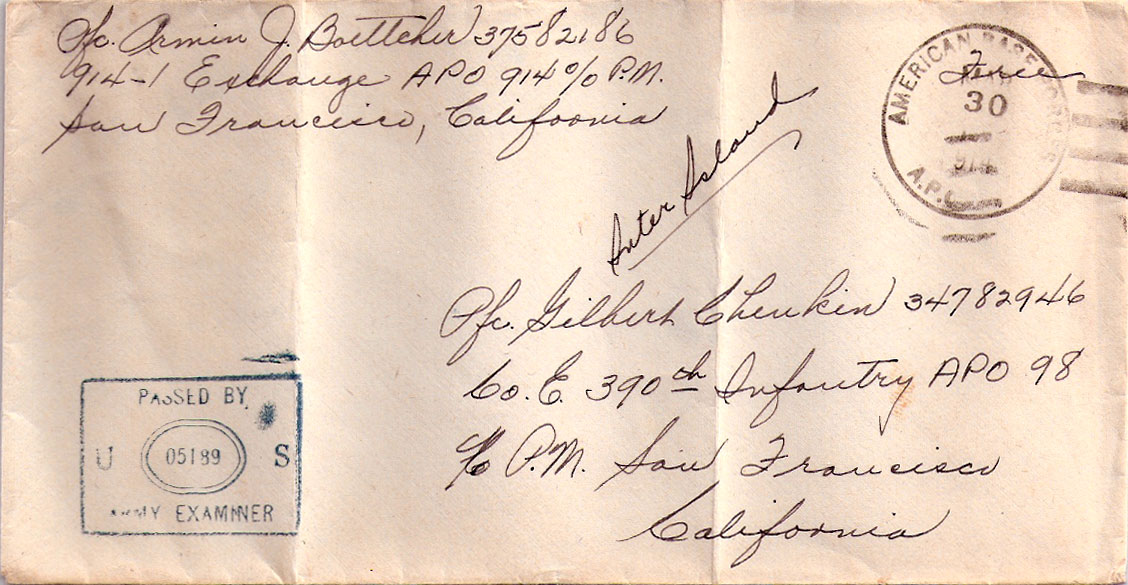 Pfc. Armin J. Boettcher 37582186
914-1 Exchange APO 914 c/o P.M.
San Francisco, California
Free
AMERICAN BASE
30
914
A.P.O.
Inter Island
Pfc. Gilbert Cheukin 34782946
Co. E. 390th Infantry APO 98
c/o P.M. San Francisco
California
PASSED BY
U 05189 S
ARMY EXAMINER